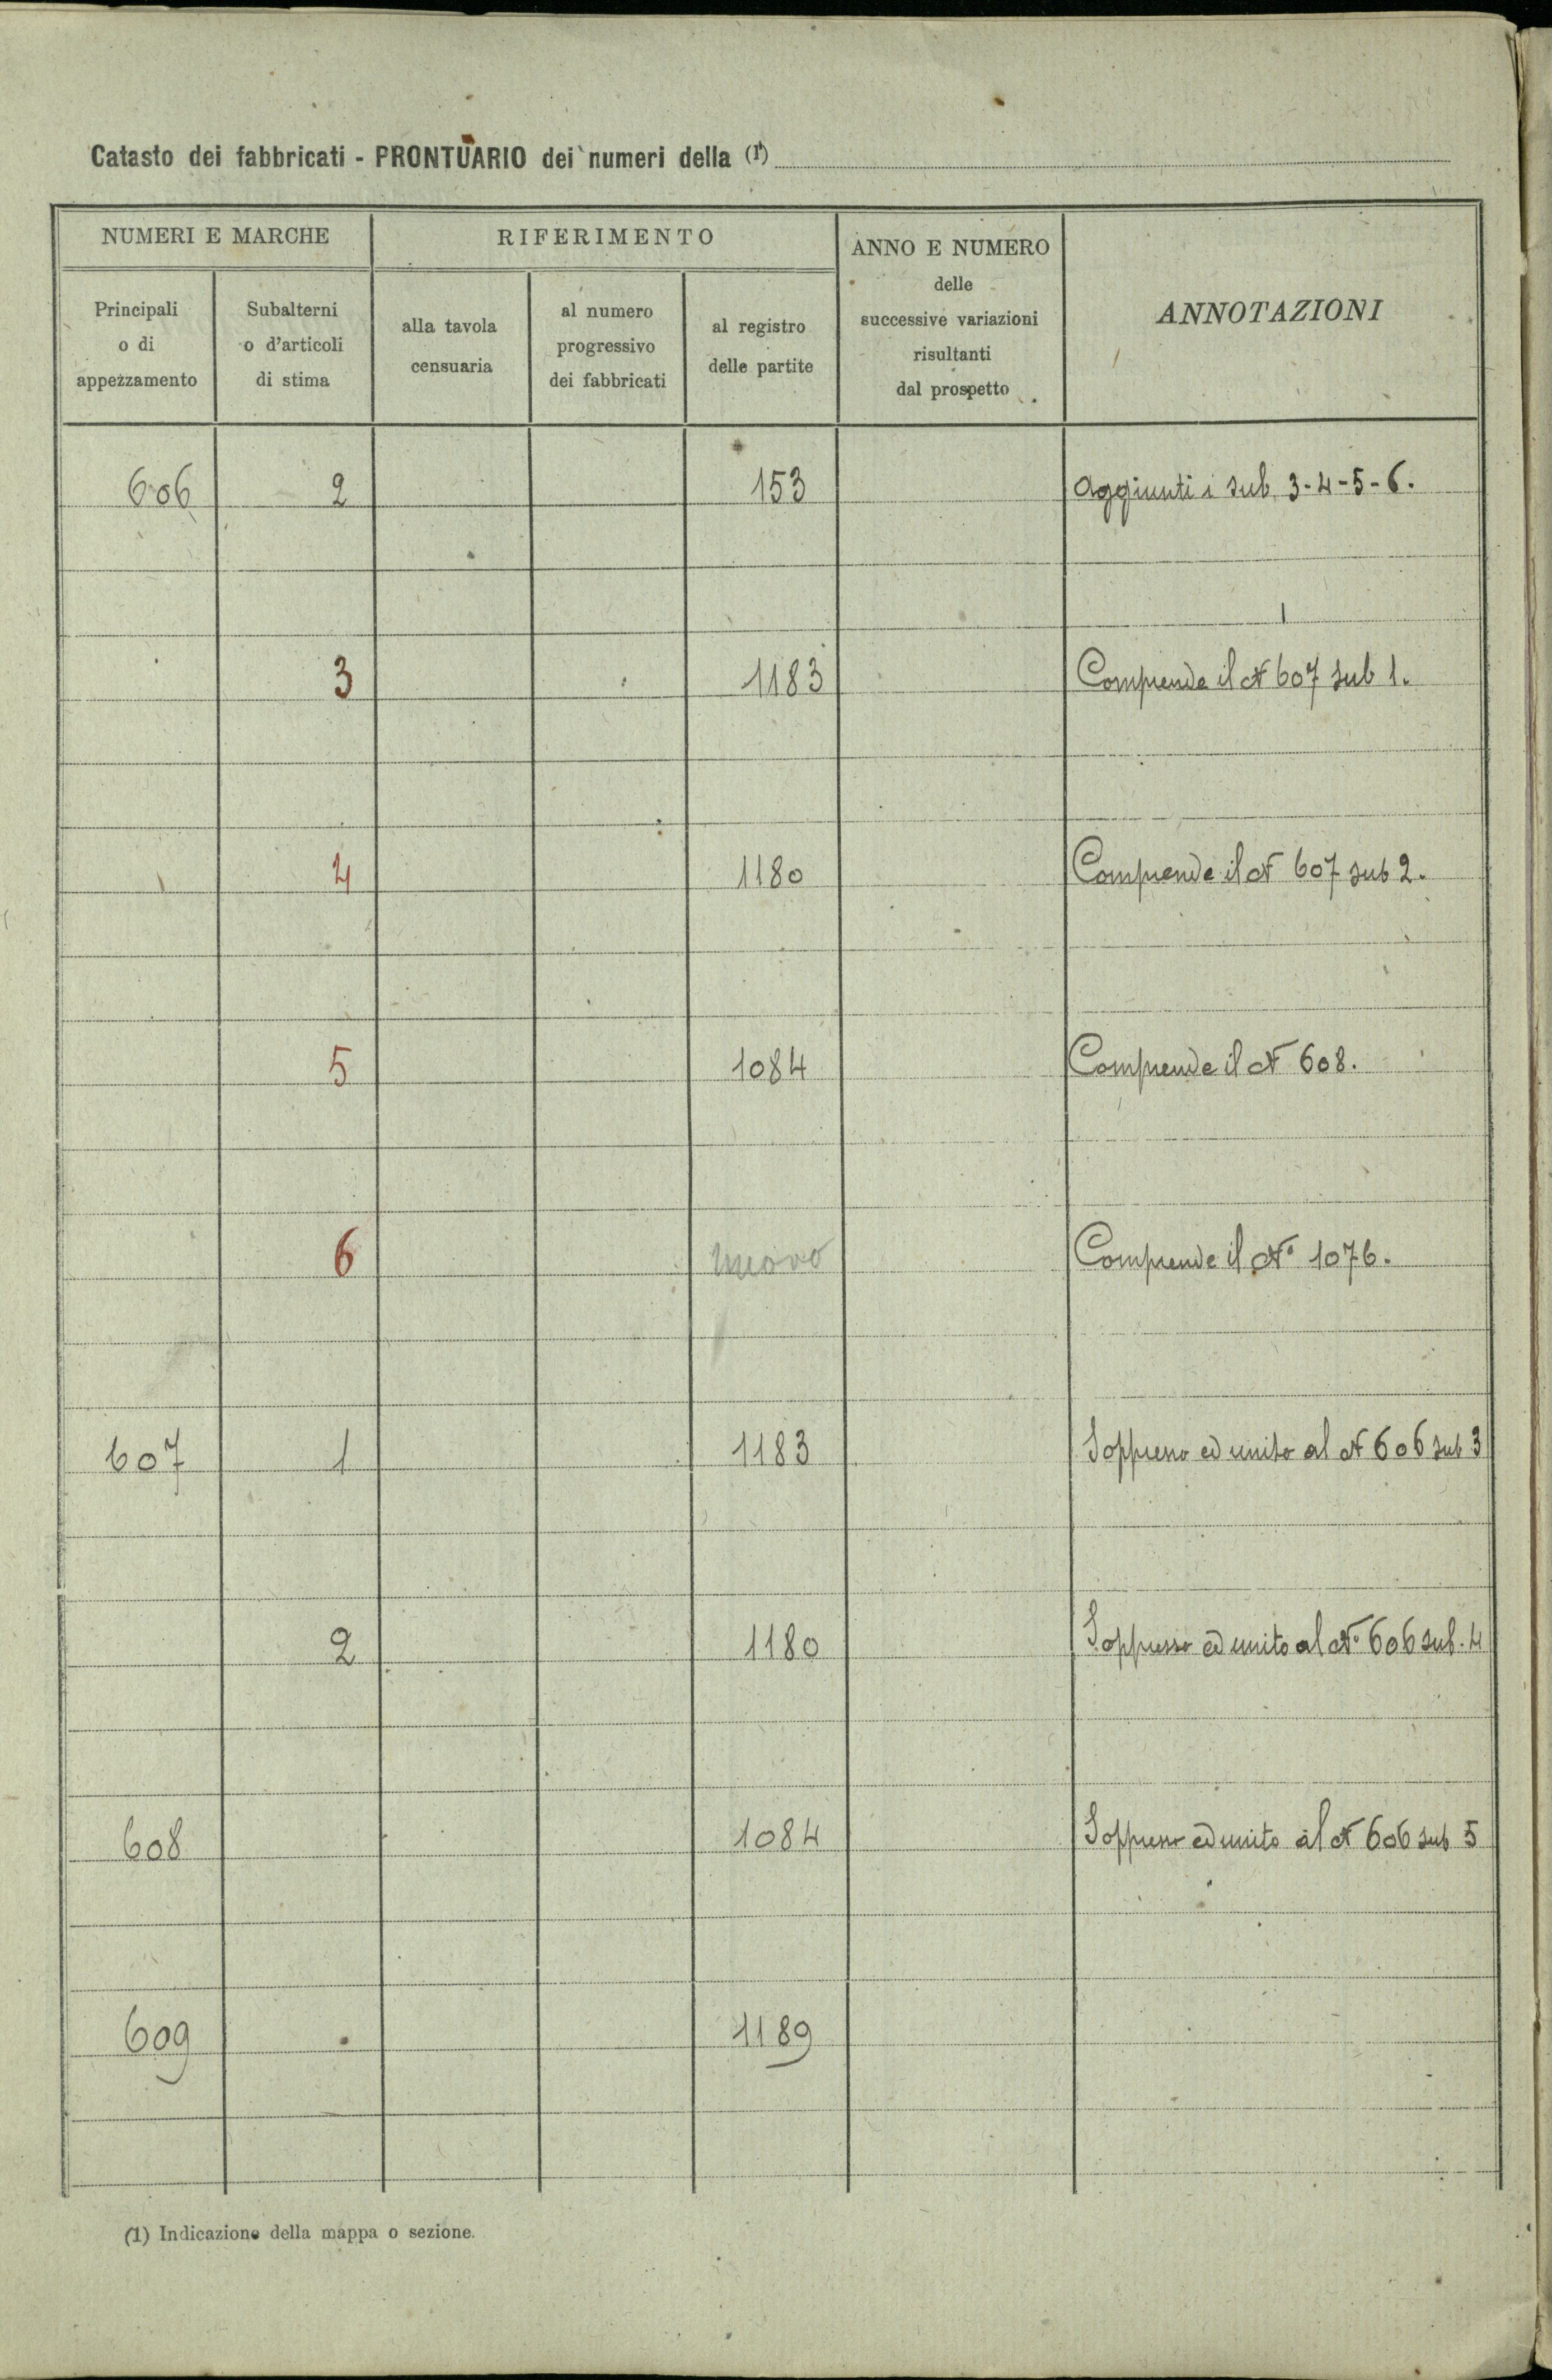 Catasto dei fabbricati - PRONTUARIO dei numeri della (1)
NUMERI E MARCHE
RIFERIMENTO
ANNO E NUMERO
delle
successive variazioni
risultanti
dal prospetto
ANNOTAZIONI
Principali
o di
appezzamento
Subalterni
o d'articoli
di stima
alla tavola
censuaria
al numero
progressivo
dei fabbricati
al registro
delle partite
606 2 153 Aggiunti i sub. 3-4-5-6.
3 1183 Comprende il N 607 sub 1.
4 1180 Comprende il N 607 sub 2.
5 1084 Comprende il N 608.
6 nuovo Comprende il N° 1076.
607 1 1183 Soppresso ed unito al N 606 sub 3
2 1180 Soppresso ed unito al N° 606 sub. 4
608 1084 Soppresso ed unito al N 606 sub 5
609 1189
(1) Indicazione della mappa o sezione.